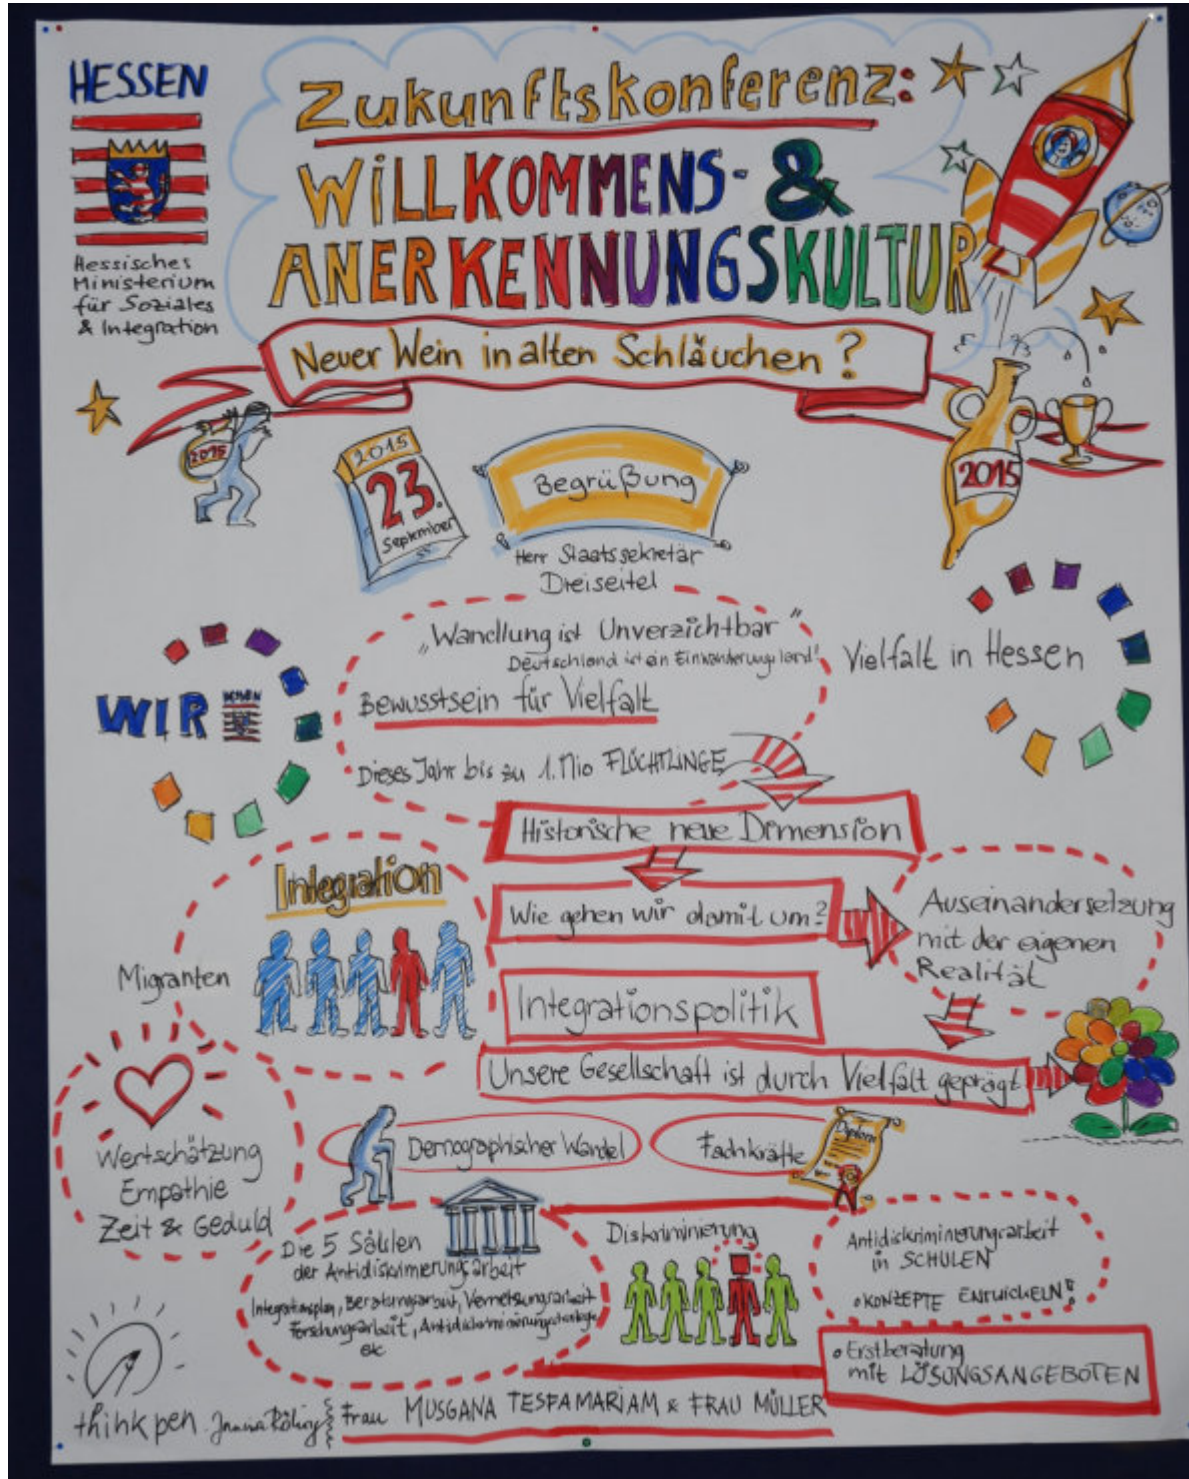 HESSEN
Hessisches
Ministerium
für Soziales
& Integration
Zukunftskonferenz:
WiLLKOMMENS- &
ANERKENNUNGSKULTUR
Neuer Wein in alten Schläuchen?
2015
2015
2015
23.
September
Begrüßung
Herr Staatssekretär
Dreiseitel
„Wandlung ist Unverzichtbar"
Deutschland ist ein Einwanderungsland!
Bewusstsein für Vielfalt
Dieses Jahr bis zu 1. Mio FLÜCHTLINGE
WIR HESSEN
Vielfalt in Hessen
Historische neue Dimension
Integration
Wie gehen wir damit um?
Auseinandersetzung
mit der eigenen
Realität
Migranten
Integrationspolitik
Unsere Gesellschaft ist durch Vielfalt geprägt
Wertschätzung
Empathie
Zeit & Geduld
Demographischer Wandel
Fachkräfte
Diplom
Die 5 Säulen
der Antidiskrimierungsarbeit
Integrationsplan, Beratungsarbeit, Vernetzungsarbeit
Forschungsarbeit, 
etc
Diskriminierung
Antidiskriminierungsarbeit
in SCHULEN
• KONZEPTE ENTWICKELN!
• Erstberatung
mit LÖSUNGSANGEBOTEN
thinkpen.
Frau MUSGANA TESFAMARIAM & FRAU MÜLLER